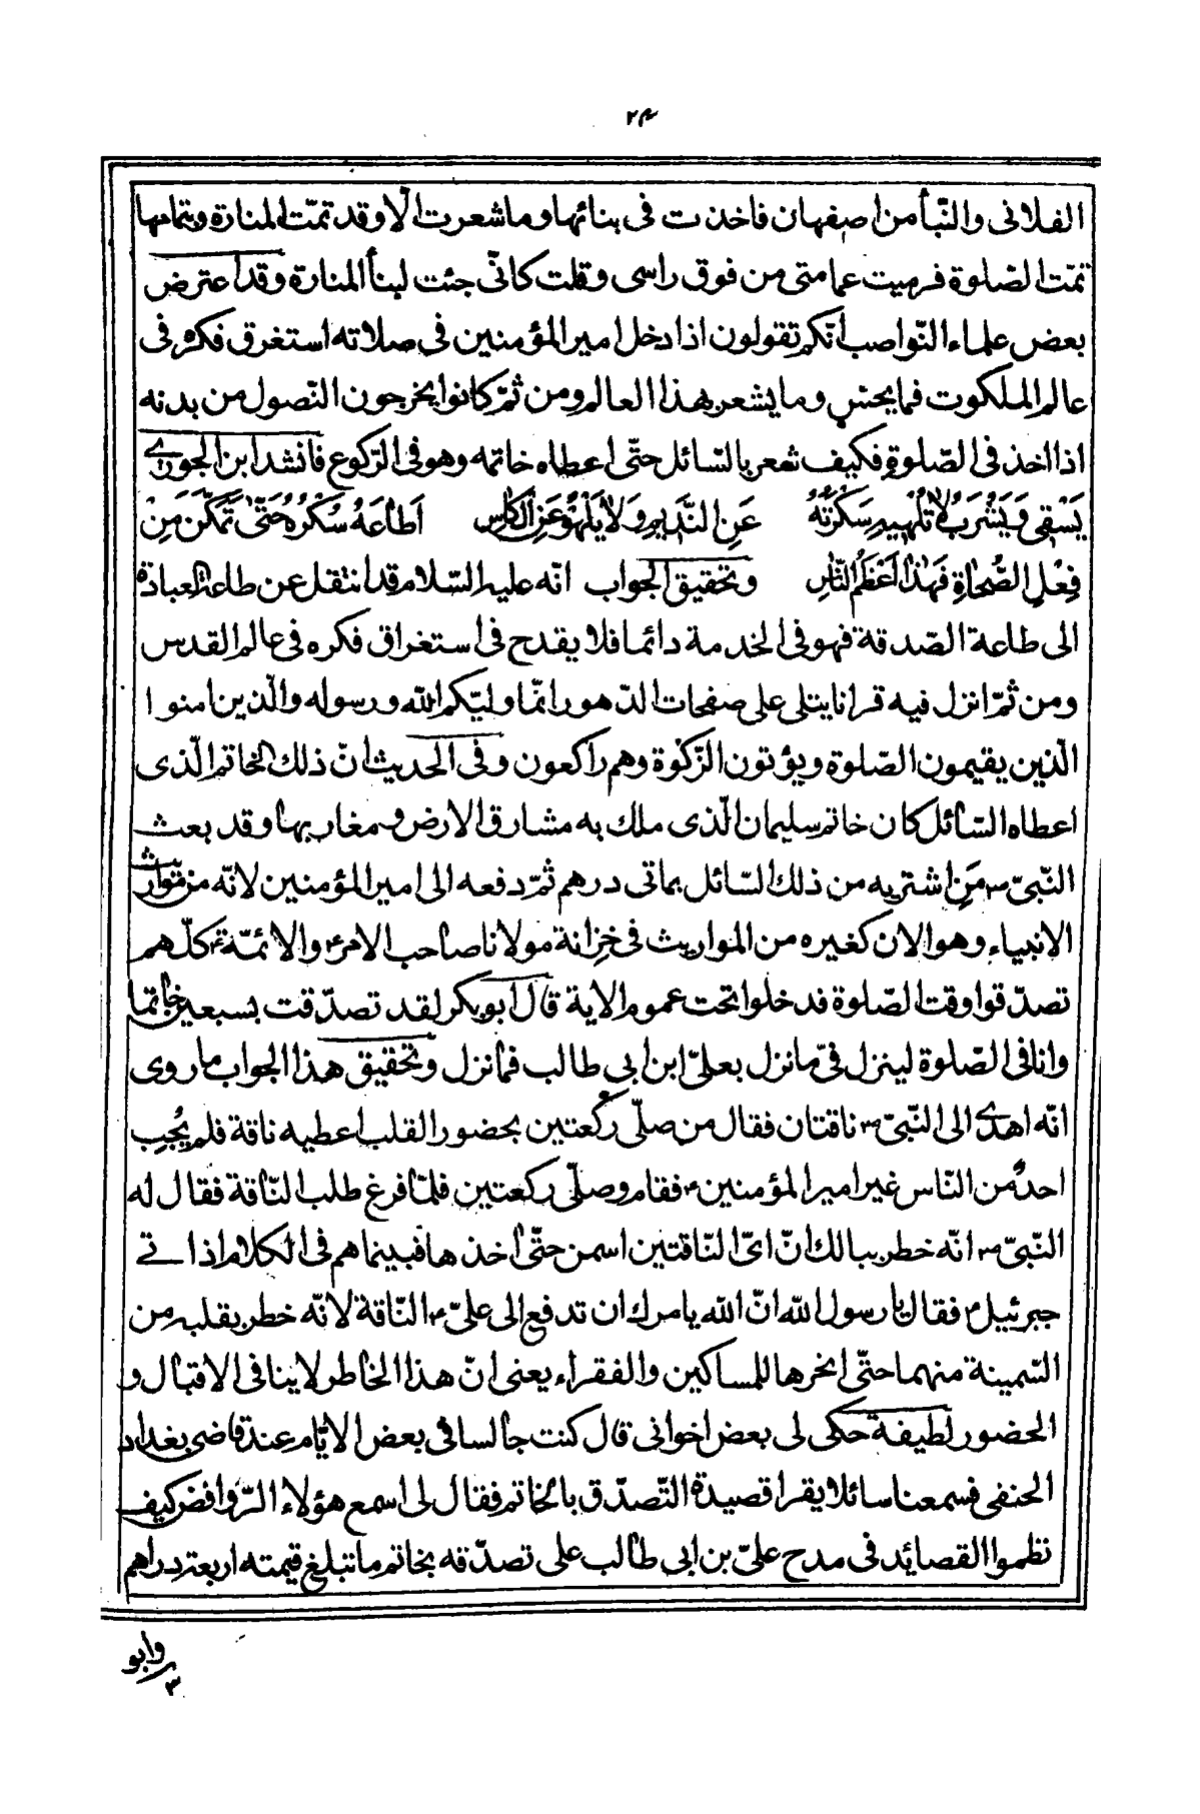 ٢٤
الفلانی والنّبأ من اصفهان فاخذت فی بنائها وما شعرت الّا وقد تمّت المنارة وبتمامها
تمّت الصّلوة فرمیت عمامتی من فوق راسی وقلت کانّی جئت لبنأ المنارة وقد اعترض
بعض علماء النّواصب انّکم تقولون اذا دخل امیر المؤمنین فی صلاته استغرق فکره فی
عالم الملکوت فما یحسّ وما یشعر بهذا العالم ومن ثمّ کانوا یخرجون النّصول من بدنه
اذا اخذ فی الصّلوة فکیف شعر بالسّائل حتّی اعطاه خاتمه وهو فی الرّکوع فانشد ابن الجوزی
یَسْقِی وَیَشْرَبُ لَا تُلْهِیهِ سَکْرَتُهُ عَنِ النَّدِیمِ وَلَا یَلْهُو عَنِ الْکَاسِ اَطَاعَهُ سُکْرُهُ حَتّٰی تَمَکَّنَ مِنْ
فِعْلِ الصُّحَاةِ فَهٰذَا اَعْظَمُ النَّاسِ وتحقیق الجواب انّه علیه السّلام قد انتقل عن طاعة العبادة
الی طاعة الصّدقة فهو فی الخدمة دائما فلا یقدح فی استغراق فکره فی عالم القدس
ومن ثمّ انزل فیه قرانا یتلی علی صفحات الدّهور انّما ولیّکم الله ورسوله والّذین امنوا
الّذین یقیمون الصّلوة ویؤتون الزّکوة وهم راکعون وفی الحدیث انّ ذلک الخاتم الّذی
اعطاه السّائل کان خاتم سلیمان الّذی ملک به مشارق الارض ومغاربها وقد بعث
النّبیّ ص مَن اشتریه من ذلک السّائل بماتی درهم ثمّ دفعه الی امیر المؤمنین لانّه من مواریث
الانبیاء وهو الان کغیره من المواریث فی خِزانة مولانا صاحب الامر ع والائمّة ع کلّهم
تصدّقوا وقت الصّلوة فدخلوا تحت عموم الایة قال ابوبکر لقد تصدّقت بسبعین خاتما
وانا فی الصّلوة لینزل فیّ ما نزل بعلیّ ابن ابی طالب فما نزل وتحقیق هذا الجواب ما روی
انّه اهدی الی النّبیّ ص ناقتان فقال من صلّی رکعتین بحضور القلب اعطیه ناقة فلم یُجِب
احدٌ من النّاس غیر امیر المؤمنین ع فقام وصلّی رکعتین فلمّا فرغ طلب النّاقة فقال له
النّبیّ ص انّه خطر ببالک انّ ایّ النّاقتین اسمن حتّی اخذها فبینما هم فی الکلام اذا تی
جبرئیل ع فقال یا رسول الله انّ الله یامرک ان تدفع الی علیّ ع النّاقة لانّه خطر بقلبه من
السّمینة منهما حتّی انحرها للمساکین والفقراء یعنی انّ هذا الخاطر لا ینافی الاقبال و
الحضور لطیفة حکی لی بعض اخوانی قال کنت جالسا فی بعض الایّام عند قاضی بغداد
الحنفی فسمعنا سائلا یقرا قصیدة التّصدّق بالخاتم فقال لی اسمع هؤلاء الرّوافض کیف
نظموا القصائد فی مدح علیّ بن ابی طالب علی تصدّقه بخاتم ما تبلغ قیمته اربعة دراهم
وابو
٣